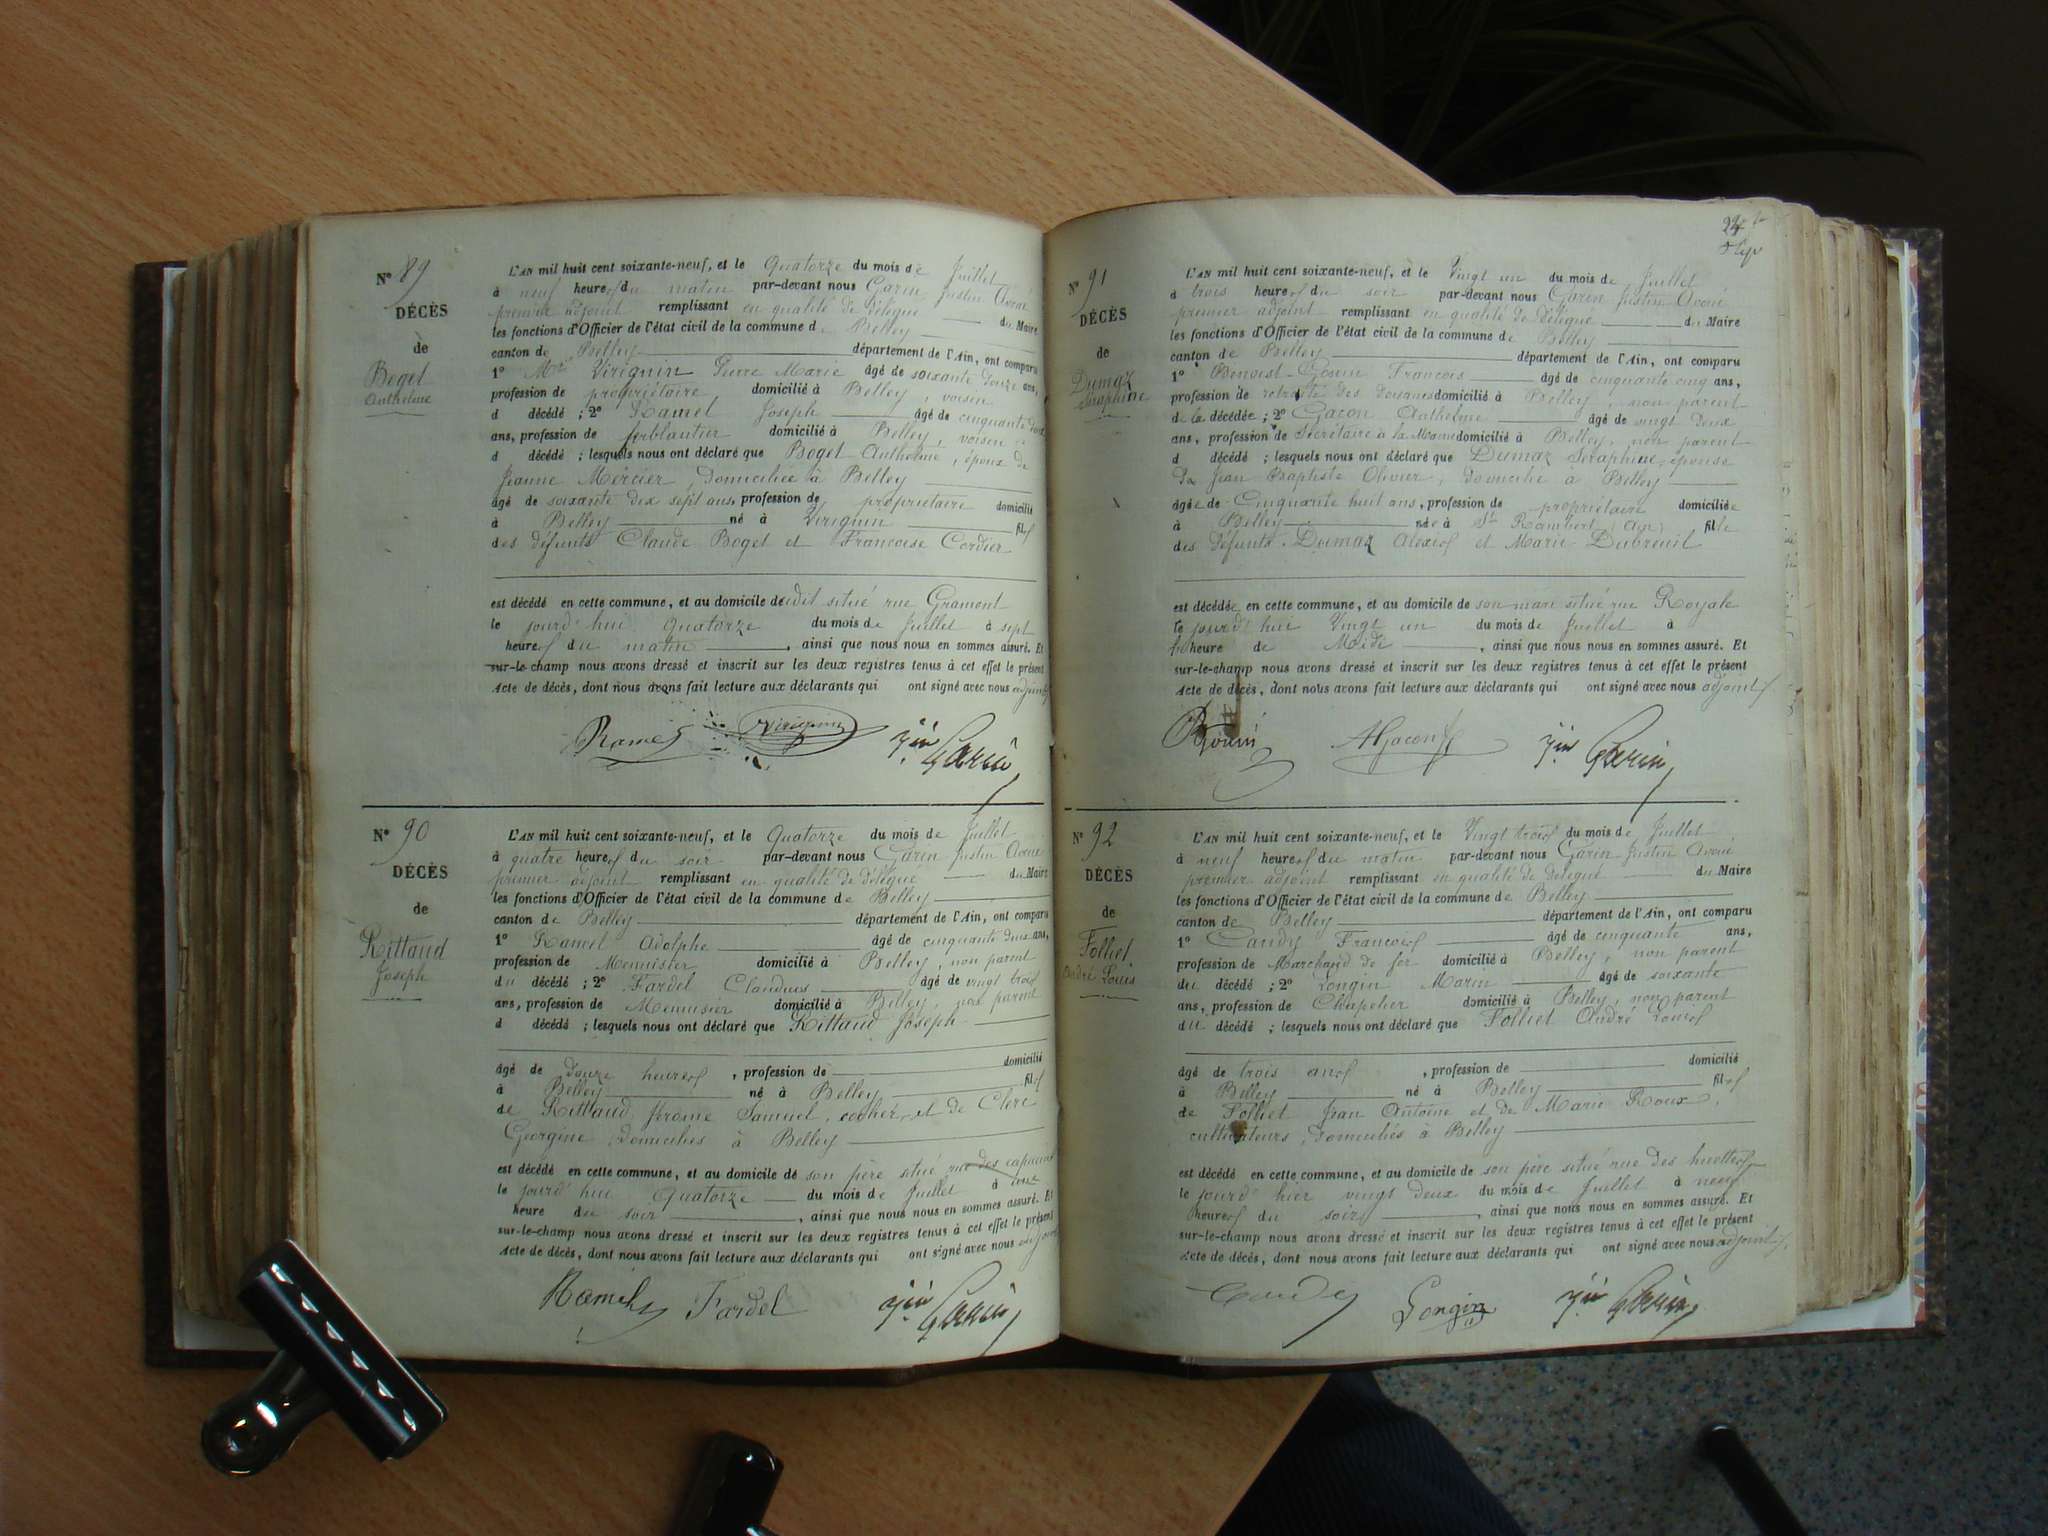 N° 89
DÉCÈS
de
Boget
Anthelme
L'AN mil huit cent soixante-neuf, et le Quatorze du mois de Juillet
à neuf heures du matin par-devant nous Garin Justin Avoué
premier adjoint remplissant en qualité de délégué du Maire
les fonctions d'Officier de l'état civil de la commune de Belley
canton de Belley département de l'Ain, ont comparu
1° Virignin Pierre Marie âgé de soixante douze ans,
profession de propriétaire domicilié à Belley, voisin
d décédé ; 2° Ramel Joseph âgé de cinquante deux
ans, profession de ferblantier domicilié à Belley, voisin
d décédé ; lesquels nous ont déclaré que Boget Anthelme, époux de
Jeanne Mercier, domiciliée à Belley
âgé de soixante dix sept ans, profession de propriétaire domicilié
à Belley né à Virignin fils
des défunts Claude Boget et Françoise Cordier
est décédé en cette commune, et au domicile dudit situé rue Gramont
le jourd'hui quatorze du mois de Juillet à sept
heures du matin, ainsi que nous nous en sommes assuré. Et
sur-le-champ nous avons dressé et inscrit sur les deux registres tenus à cet effet le présent
Acte de décès, dont nous avons fait lecture aux déclarants qui ont signé avec nous adjoint
Ramel Virignin Jin Garin
N° 90
DÉCÈS
de
Rittaud
Joseph
L'AN mil huit cent soixante-neuf, et le Quatorze du mois de Juillet
à quatre heures du soir par-devant nous Garin Justin Avoué
premier adjoint remplissant en qualité de délégué du Maire
les fonctions d'Officier de l'état civil de la commune de Belley
canton de Belley département de l'Ain, ont comparu
1° Ramel Adolphe âgé de cinquante deux ans,
profession de Menuisier domicilié à Belley, non parent
du décédé ; 2° Fardel Claudius âgé de vingt trois
ans, profession de Menuisier domicilié à Belley, non parent
d décédé ; lesquels nous ont déclaré que Rittaud Joseph
âgé de douze heures, profession de domicilié
à Belley né à Belley fils
de Rittaud Jérôme Samuel, cocher, et de Clerc
Georgine, domiciliés à Belley
est décédé en cette commune, et au domicile de son père situé rue des capucins
le jourd'hui Quatorze du mois de Juillet à une
heure du soir, ainsi que nous nous en sommes assuré. Et
sur-le-champ nous avons dressé et inscrit sur les deux registres tenus à cet effet le présent
Acte de décès, dont nous avons fait lecture aux déclarants qui ont signé avec nous adjoint
Ramel Fardel Jin Garin
N° 91
DÉCÈS
de
Dumaz
Séraphine
L'AN mil huit cent soixante-neuf, et le Vingt un du mois de Juillet
à trois heures du soir par-devant nous Garin Justin Avoué
premier adjoint remplissant en qualité de délégué du Maire
les fonctions d'Officier de l'état civil de la commune de Belley
canton de Belley département de l'Ain, ont comparu
1° Benoist-Gonin François âgé de cinquante cinq ans,
profession de retraité des Douanes domicilié à Belley, non parent
de la décédée ; 2° Gacon Anthelme âgé de vingt deux
ans, profession de Secrétaire à la Mairie domicilié à Belley, non parent
d décédé ; lesquels nous ont déclaré que Dumaz Séraphine épouse
de Jean Baptiste Olivier, domicilié à Belley
âgée de Cinquante huit ans, profession de propriétaire domiciliée
à Belley née à St Rambert (Ain) fille
des défunts Dumaz Alexis et Marie Dubreuil
est décédée en cette commune, et au domicile de son mari situé rue Royale
le jourd'hui Vingt un du mois de Juillet à
heure de Midi, ainsi que nous nous en sommes assuré. Et
sur-le-champ nous avons dressé et inscrit sur les deux registres tenus à cet effet le présent
Acte de décès, dont nous avons fait lecture aux déclarants qui ont signé avec nous adjoint
BGonin AGacon Jin Garin
N° 92
DÉCÈS
de
Folliet
André Louis
L'AN mil huit cent soixante-neuf, et le Vingt trois du mois de Juillet
à neuf heures du matin par-devant nous Garin Justin Avoué
premier adjoint remplissant en qualité de délégué du Maire
les fonctions d'Officier de l'état civil de la commune de Belley
canton de Belley département de l'Ain, ont comparu
1° Candy François âgé de cinquante ans,
profession de Marchand de fer domicilié à Belley, non parent
du décédé ; 2° Longin Marin âgé de soixante
ans, profession de Chapelier domicilié à Belley, non parent
du décédé ; lesquels nous ont déclaré que Folliet André Louis
âgé de trois ans, profession de domicilié
à Belley né à Belley fils
de Folliet Jean Antoine et de Marie Roux,
cultivateurs, domiciliés à Belley
est décédé en cette commune, et au domicile de son père situé rue des huttes
le jourd'hier vingt deux du mois de Juillet à neuf
heures du soir, ainsi que nous nous en sommes assuré. Et
sur-le-champ nous avons dressé et inscrit sur les deux registres tenus à cet effet le présent
Acte de décès, dont nous avons fait lecture aux déclarants qui ont signé avec nous adjoint
Candy Longin Jin Garin